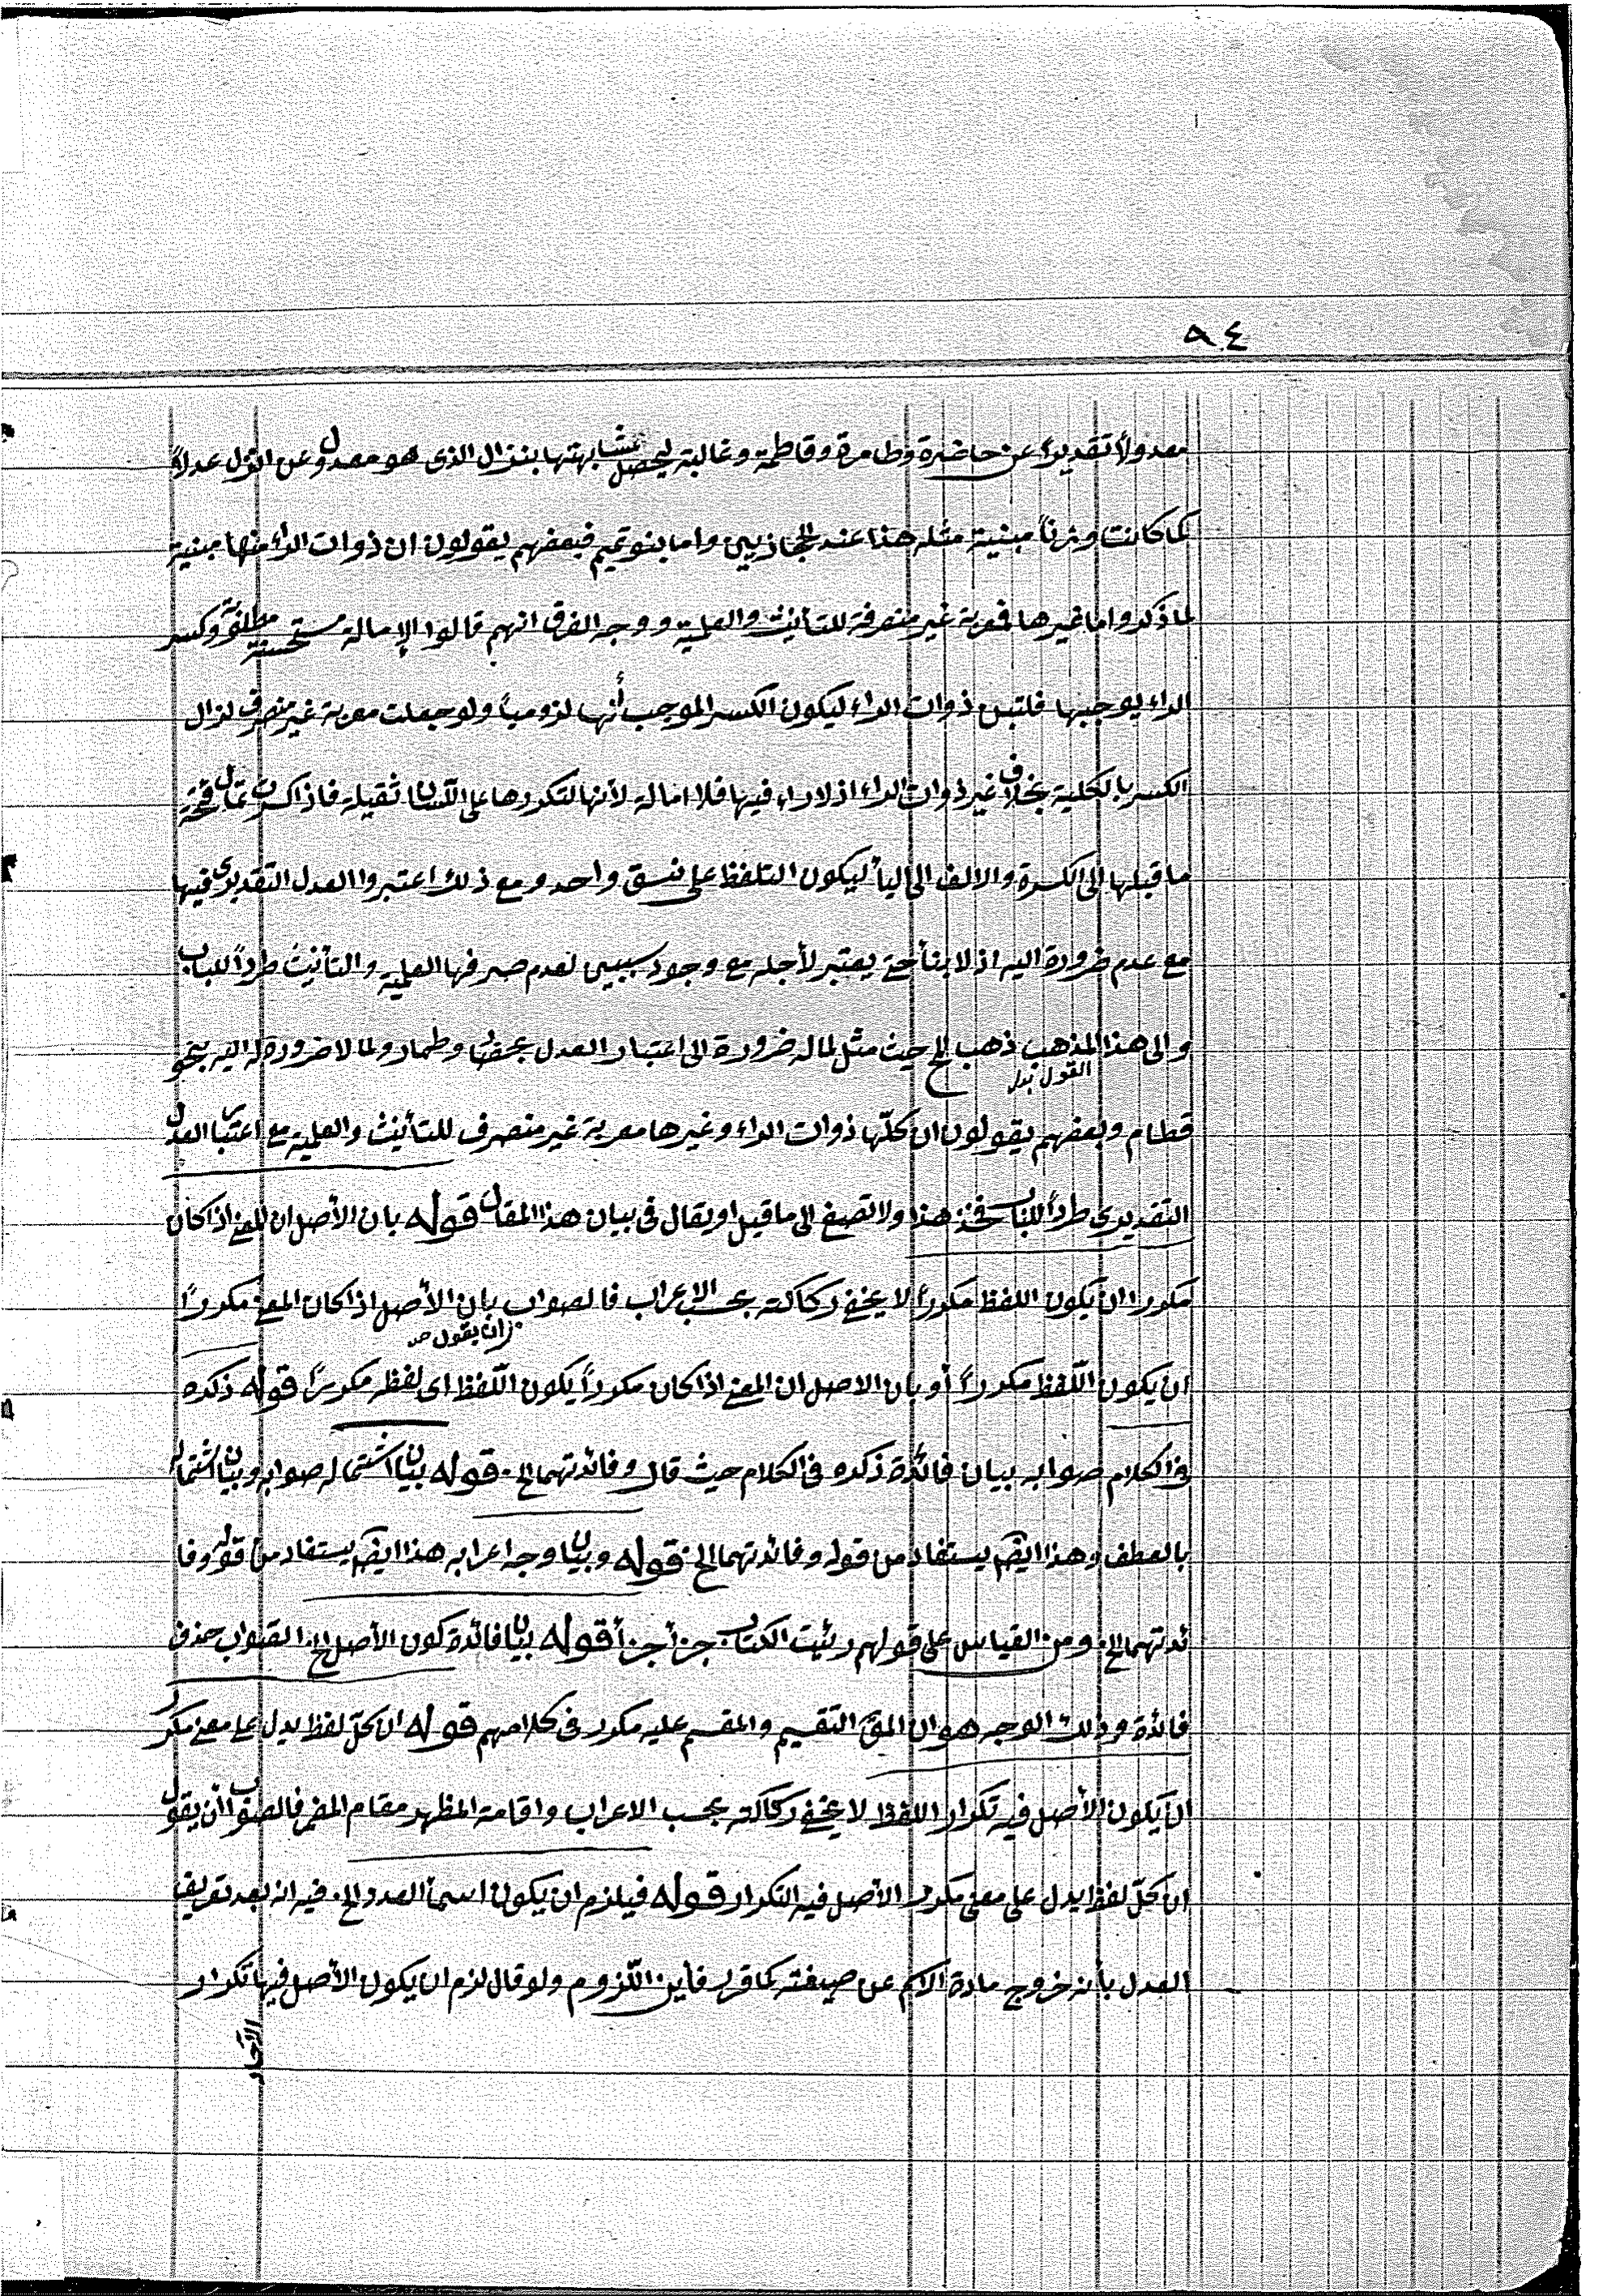 ٨٤
معدولاً تقديراً عن حاضرة وطامرة وقاطمة وغالبة ليحصل مشابهتها بنزال الذى هو معدول عن انزل عدلاً
كما كانت وزناً مبنية مثله هذا عند الحجازيين واما بنو تميم فبعضهم يقولون ان ذوات الراء منها مبنية
لما ذكر واما غيرها فمعربة غير منصرفة للتأنيث والعلمية ووجه الفرق انهم قالوا الإمالة مستحسنة مطلقاً وكسر
الراء يوجبها فلتبن ذوات الراء ليكون الكسر الموجب أنها لزومياً ولو جعلت معربة غير منصرف لزال
الكسر بالكلية بخلاف غير ذوات الراء اذ لا راء فيها فلا امالة لأنها لتكررها على اللسان ثقيلة فاذا كسرت تمال فتحة
ما قبلها الى الكسرة والالف الى اليأ ليكون التلفظ على نسق واحد ومع ذلك اعتبروا العدل التقديرى فيها
مع عدم ضرورة اليه اذ لا بنأ حتى يعتبر لأجله مع وجود سببين لعدم صرفها العلمية والتأنيث طرداً للباب
والى هذا المذهب ذهب الخ حيث مثل لماله ضرورة الى اعتبار العدل بحضار وطمار ولما لا ضرورة له اليه بنحو
القول بدل
قطام وبعضهم يقولون ان كلّها ذوات الراء وغيرها معربة غير منصرف للتأنيث والعلمية مع اعتبار العدل
التقديرى طرداً للباب فخذ هذا ولا تصغ الى ما قيل او يقال فى بيان هذا المقال قوله بان الأصل ان المعنى اذا كان
مكررا ان يكون اللفظ مكرراً لا يخفى ركاكته بحسب الاعراب فالصواب بان الأصل اذا كان المعنى مكرراً
ان يقول صح
ان يكون اللّفظ مكرراً أو بان الاصل ان المعنى اذا كان مكرراً يكون اللّفظ اى لفظه مكرراً قوله ذكره
فى الكلام صوابه بيان فائدة ذكره فى الكلام حيث قال وفائدتهما الخ. قوله بيان اشتماله صوابه وبيان اشتماله
بالعطف وهذا ايضم يستفاد من قوله وفائدتهما الخ. قوله وبيان وجه اعرابه هذا ايضم يستفاد من قوله وفا
ئدتهما الخ. ومن القياس على قولهم رئيت الكتاب جزأ جزأ قوله بيان فائدة كون الأصل الخ. الصواب حذف
فائدة وذلك الوجه هو ان المق التقسيم والمقسم عليه مكرر فى كلامهم قوله ان كلّ لفظ يدل على معنى مكرر
ان يكون الأصل فيه تكرار اللفظ لا يخفى ركاكته بحسب الاعراب واقامة المظهر مقام المضمر فالصواب أن يقول
ان كلّ لفظ يدل على معنى مكرر الأصل فيه التكرار قوله فيلزم ان يكون اسمأ العدد الخ. فيه انه بعد تعريف
العدل بأنه خروج مادة الاسم عن صيغته كما قرر فأين اللّزوم ولو قال لزم ان يكون الأصل فيها تكرار
الآحاد